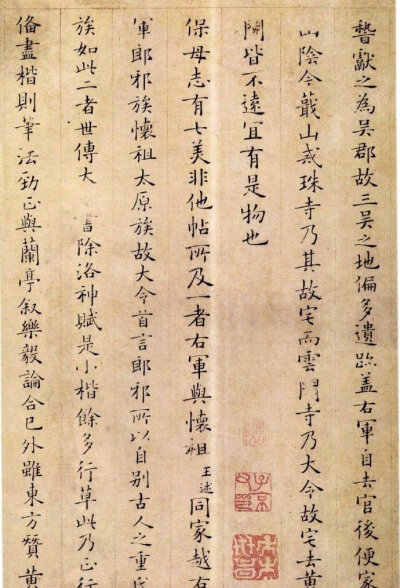 獻之為吳郡故三吳之地偏多遺跡蓋右軍自去官後便家
山陰今蕺山戒珠寺乃其故宅而雲門寺乃大令故宅去黃
閍皆不遠宜有是物也
保母志有七美非他帖所及一者右軍與懷祖王述同家越右
軍郎邪族懷祖太原族故大令首言郎邪所以自別古人之重氏
族如此二者世傳大 除洛神賦是小楷餘多行草此乃正行
備盡楷則筆法勁正與蘭亭叙樂毅論合已外雖東方贊黃